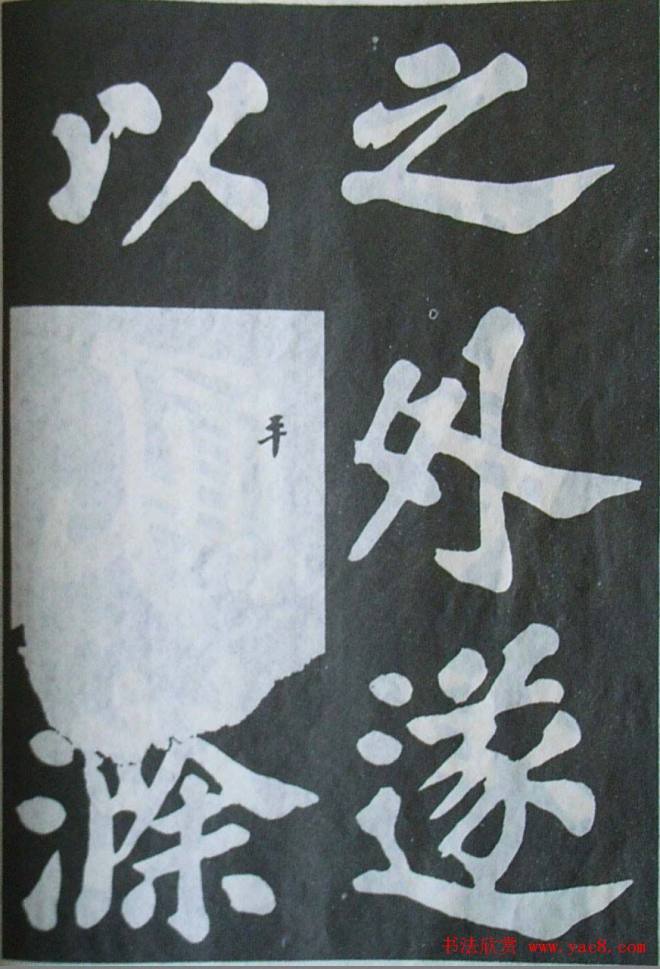 之外遂
以平滁
书法欣赏 www.yac8.com